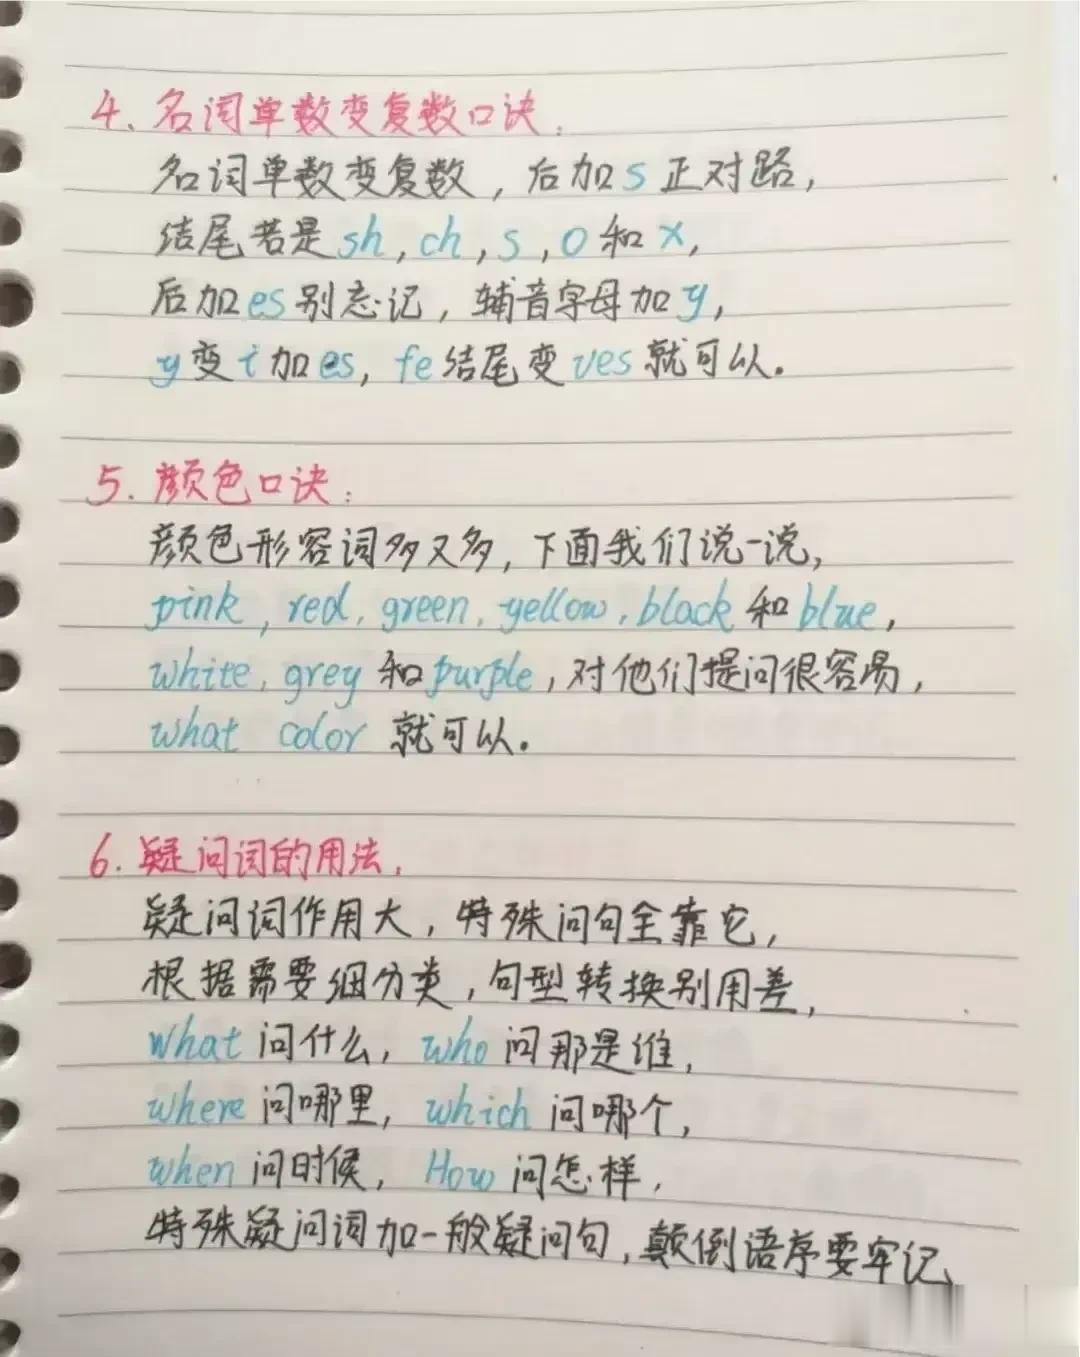 4. 名词单数变复数口诀:
名词单数变复数，后加s正对路，
结尾若是sh, ch, s, o和x,
后加es别忘记，辅音字母加y,
y变i加es, fe结尾变ves就可以。
5. 颜色口诀:
颜色形容词多又多，下面我们说一说，
pink, red, green, yellow, black和blue,
white, grey和purple, 对他们提问很容易，
what color 就可以。
6. 疑问词的用法,
疑问词作用大，特殊问句全靠它，
根据需要细分类，句型转换别用差，
what问什么, who问那是谁,
where问哪里, which问哪个,
when问时候, How问怎样,
特殊疑问词加一般疑问句，颠倒语序要牢记